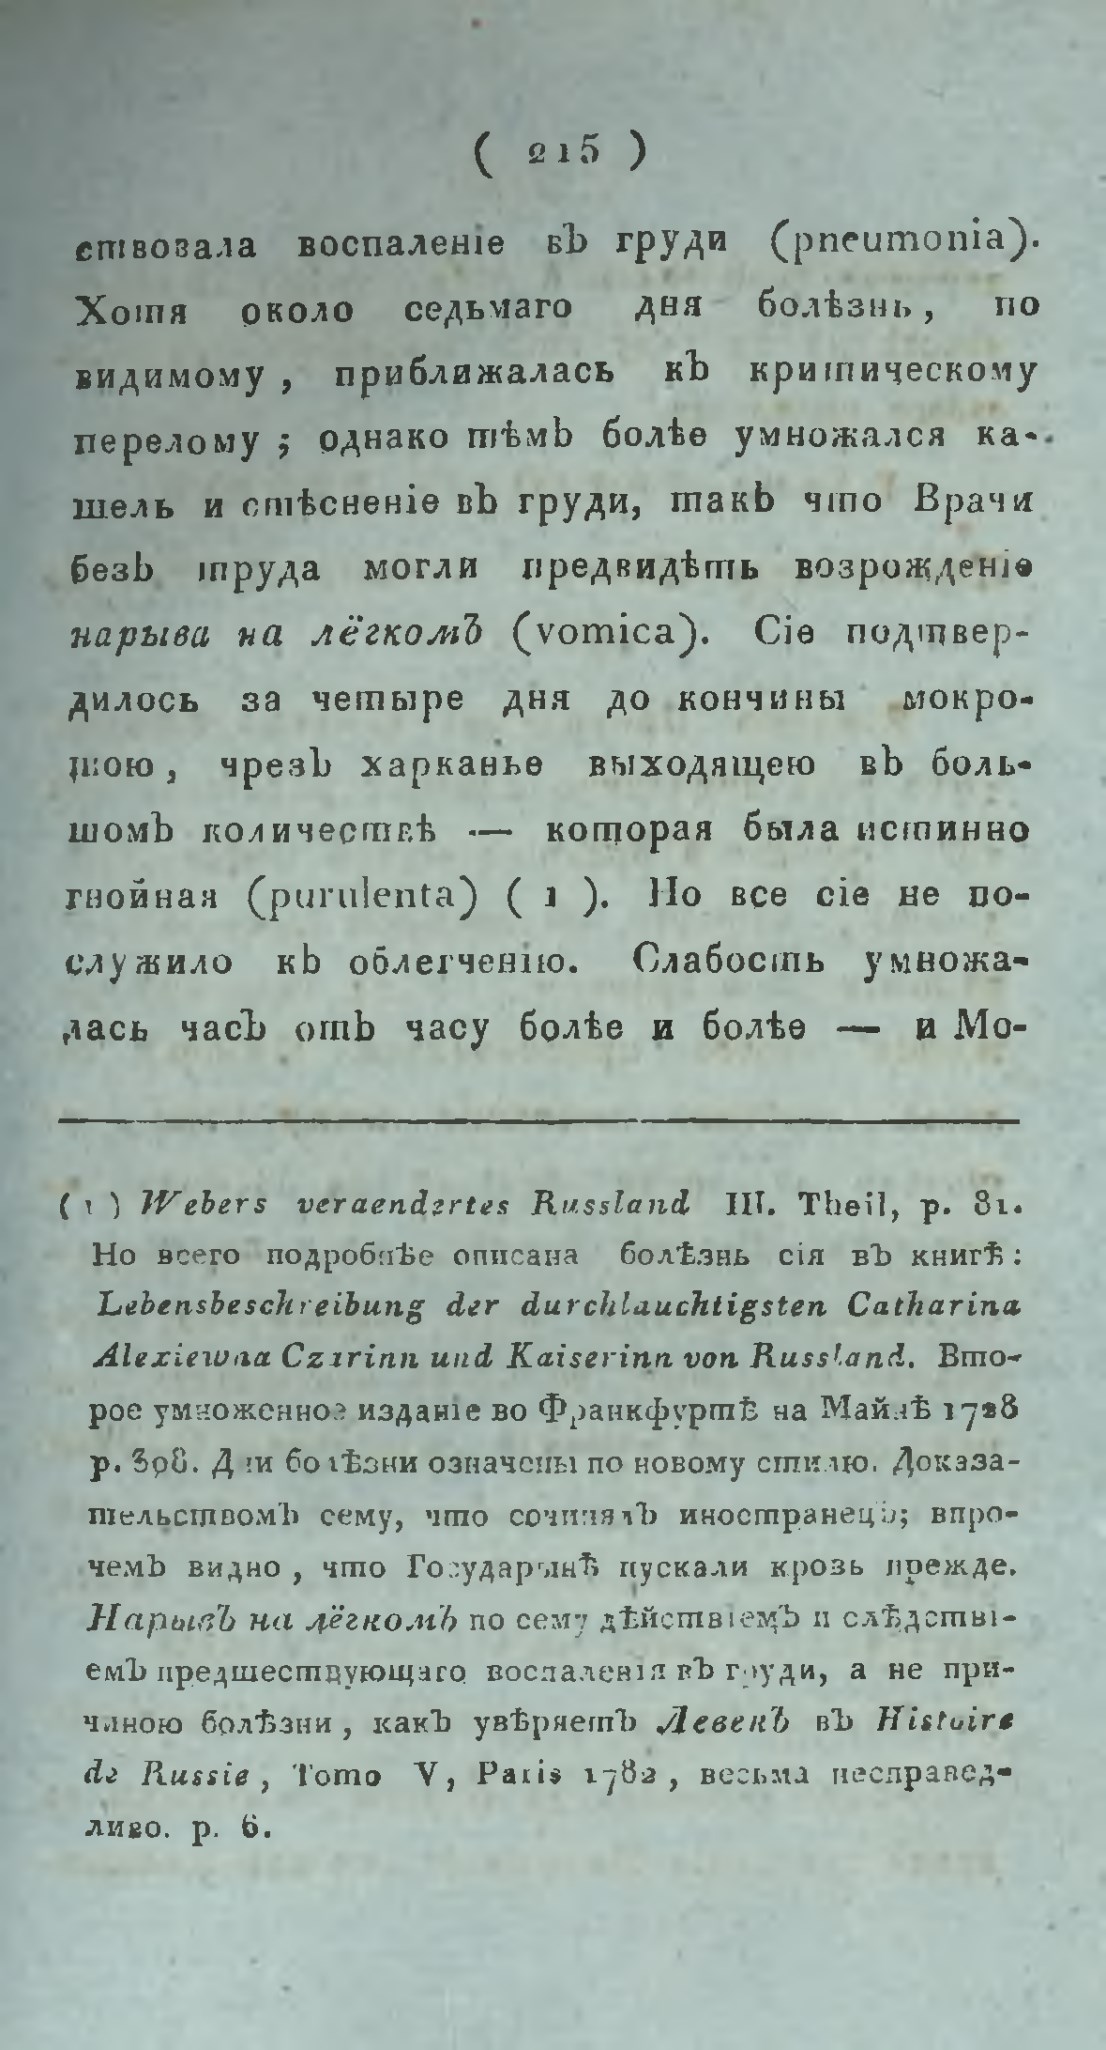 ( 215 )
ствовала воспаленіе въ груди (pneumonia).
Хотя около седьмаго дня болѣзнь, по
видимому, приближалась къ критическому
перелому; однако тѣмъ болѣе умножался ка-
шель и стѣсненіе въ груди, такъ что Врачи
безъ труда могли предвидѣть возрожденіе
нарыва на лёгкомъ (vomica). Сіе подтвер-
дилось за четыре дня до кончины мокро-
тою, чрезъ харканье выходящею въ боль-
шомъ количествѣ — которая была истинно
гнойная (purulenta) ( 1 ). Но все сіе не по-
служило къ облегченію. Слабость умножа-
лась часъ отъ часу болѣе и болѣе — и Мо-
( 1 ) Webers veraendertes Russland III. Theil, p. 81.
Но всего подробнѣе описана болѣзнь сія въ книгѣ:
Lebensbeschreibung der durchlauchtigsten Catharina
Alexiewna Czarinn und Kaiserinn von Russland. Вто-
рое умноженное изданіе во Франкфуртѣ на Майнѣ 1728
p. 398. Дни болѣзни означены по новому стилю. Доказа-
тельствомъ сему, что сочинялъ иностранецъ; впро-
чемъ видно, что Государынѣ пускали кровь прежде.
Нарывъ на лёгкомъ по сему дѣйствіемъ и слѣдстві-
емъ предшествующаго воспаленія въ груди, а не при-
чиною болѣзни, какъ увѣряетъ Левекъ въ Histoire
de Russie, Tomo V, Paris 1782, весьма несправед-
ливо. p. 6.